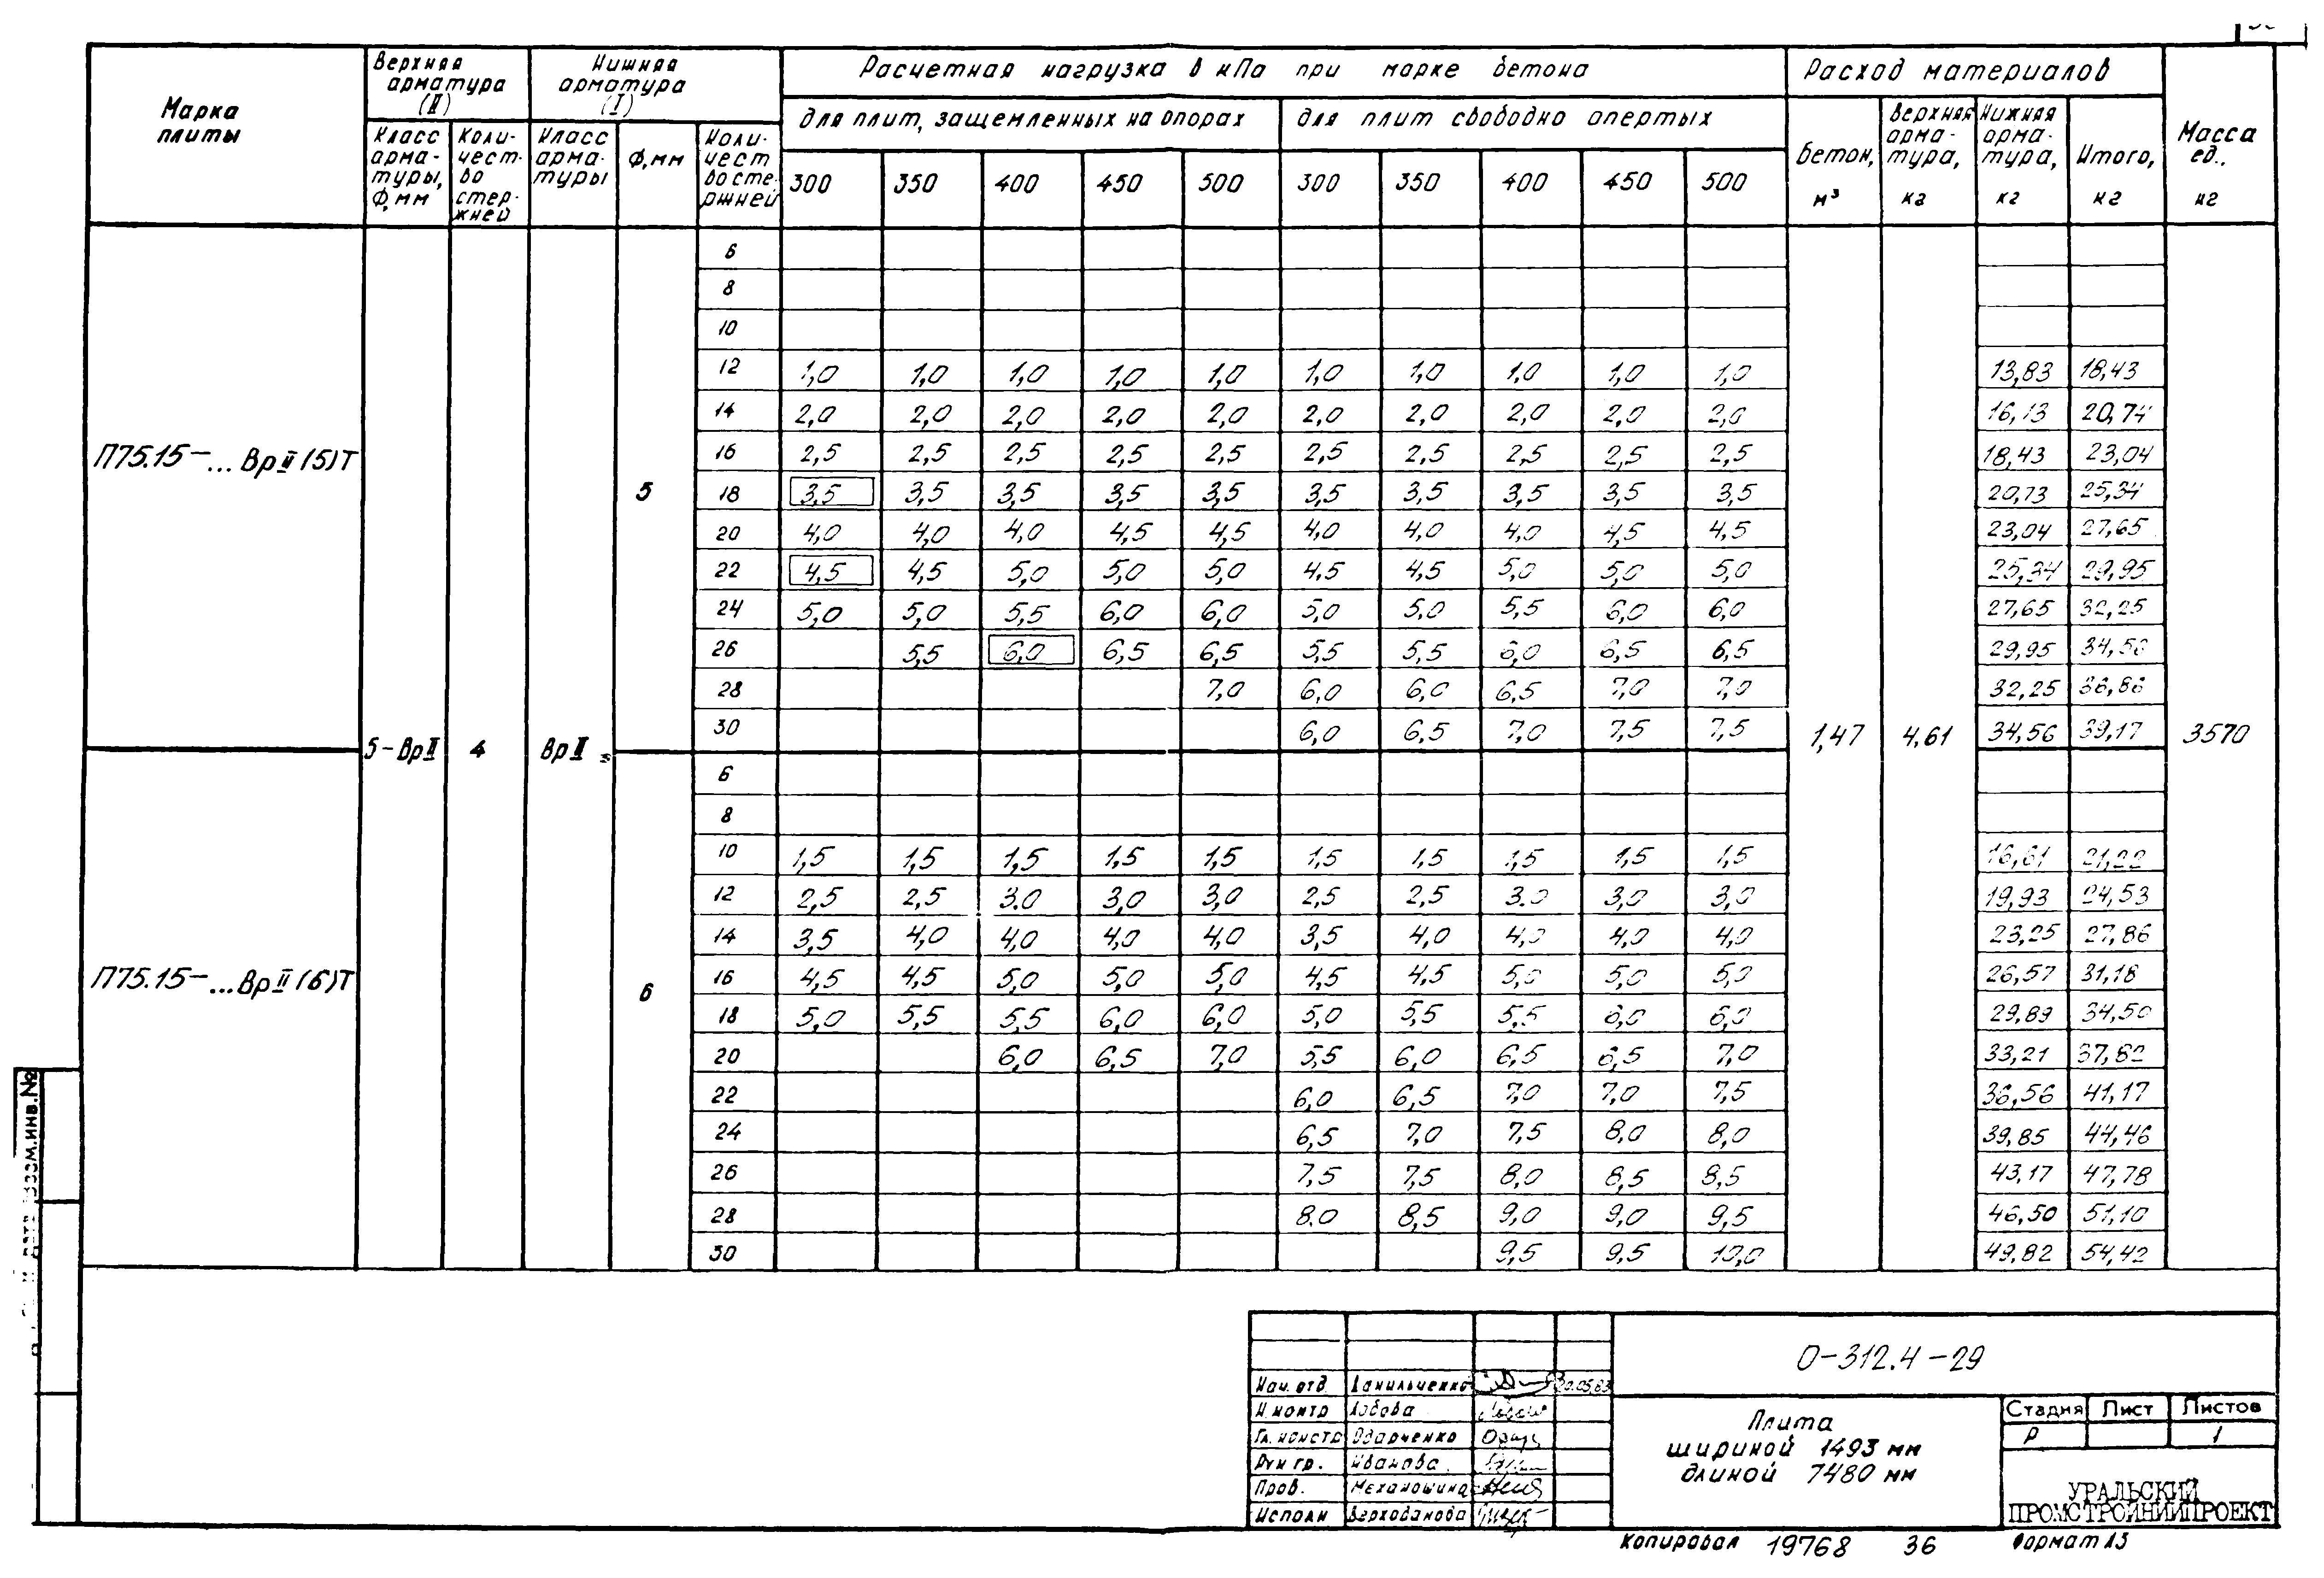 Марка плиты
Верхняя арматура (II)
Нижняя арматура (I)
Расчетная нагрузка в кПа при марке бетона
Расход материалов
Масса ед., кг
Класс арма-туры, Ф, мм
Коли-чест-во стер-жней
Класс арма-туры
Ф, мм
Коли-чест во сте-ржней
для плит, защемленных на опорах
для плит свободно опертых
300 350 400 450 500 300 350 400 450 500
бетон, м³
верхняя арма-тура, кг
Нижняя арма-тура, кг
Итого, кг
П75.15-... ВрII (5)Т
5-ВрII 4 ВрII 5
6
8
10
12 1,0 1,0 1,0 1,0 1,0 1,0 1,0 1,0 1,0 1,0 13,83 18,43
14 2,0 2,0 2,0 2,0 2,0 2,0 2,0 2,0 2,0 2,0 16,13 20,74
16 2,5 2,5 2,5 2,5 2,5 2,5 2,5 2,5 2,5 2,5 18,43 23,04
18 3,5 3,5 3,5 3,5 3,5 3,5 3,5 3,5 3,5 3,5 20,73 25,34
20 4,0 4,0 4,0 4,5 4,5 4,0 4,0 4,0 4,5 4,5 23,04 27,65
22 4,5 4,5 5,0 5,0 5,0 4,5 4,5 5,0 5,0 5,0 25,34 29,95
24 5,0 5,0 5,5 6,0 6,0 5,0 5,0 5,5 6,0 6,0 27,65 32,25
26 5,5 6,0 6,5 6,5 5,5 5,5 6,0 6,5 6,5 29,95 34,56
28 7,0 6,0 6,0 6,5 7,0 7,0 32,25 36,86
30 6,0 6,5 7,0 7,5 7,5 34,56 39,17
1,47 4,61 3570
П75.15-... ВрII (6)Т
6
6
8
10 1,5 1,5 1,5 1,5 1,5 1,5 1,5 1,5 1,5 1,5 16,61 21,22
12 2,5 2,5 3.0 3,0 3,0 2,5 2,5 3.0 3,0 3,0 19,93 24,53
14 3,5 4,0 4,0 4,0 4,0 3,5 4,0 4,0 4,0 4,0 23,25 27,86
16 4,5 4,5 5,0 5,0 5,0 4,5 4,5 5,0 5,0 5,0 26,57 31,18
18 5,0 5,5 5,5 6,0 6,0 5,0 5,5 5,5 6,0 6,0 29,89 34,50
20 6,0 6,5 7,0 5,5 6,0 6,5 6,5 7,0 33,21 37,82
22 6,0 6,5 7,0 7,0 7,5 36,56 41,17
24 6,5 7,0 7,5 8,0 8,0 39,85 44,46
26 7,5 7,5 8,0 8,5 8,5 43,17 47,78
28 8.0 8,5 9,0 9,0 9,5 46,50 51,10
30 9,5 9,5 10,0 49,82 54,42
взам.инв.№
О-312.4-29
Нач. отд. Данильченко
Н.контр Лобова
Гл. констр Одарченко
Рук гр. Иванова
Пров. Механошина
Исполн Верходанова
Плита
шириной 1493 мм
длиной 7480 мм
Стадия Лист Листов
Р 1
УРАЛЬСКИЙ
ПРОМСТРОЙНИИПРОЕКТ
Копировал 19768 36 Формат А3